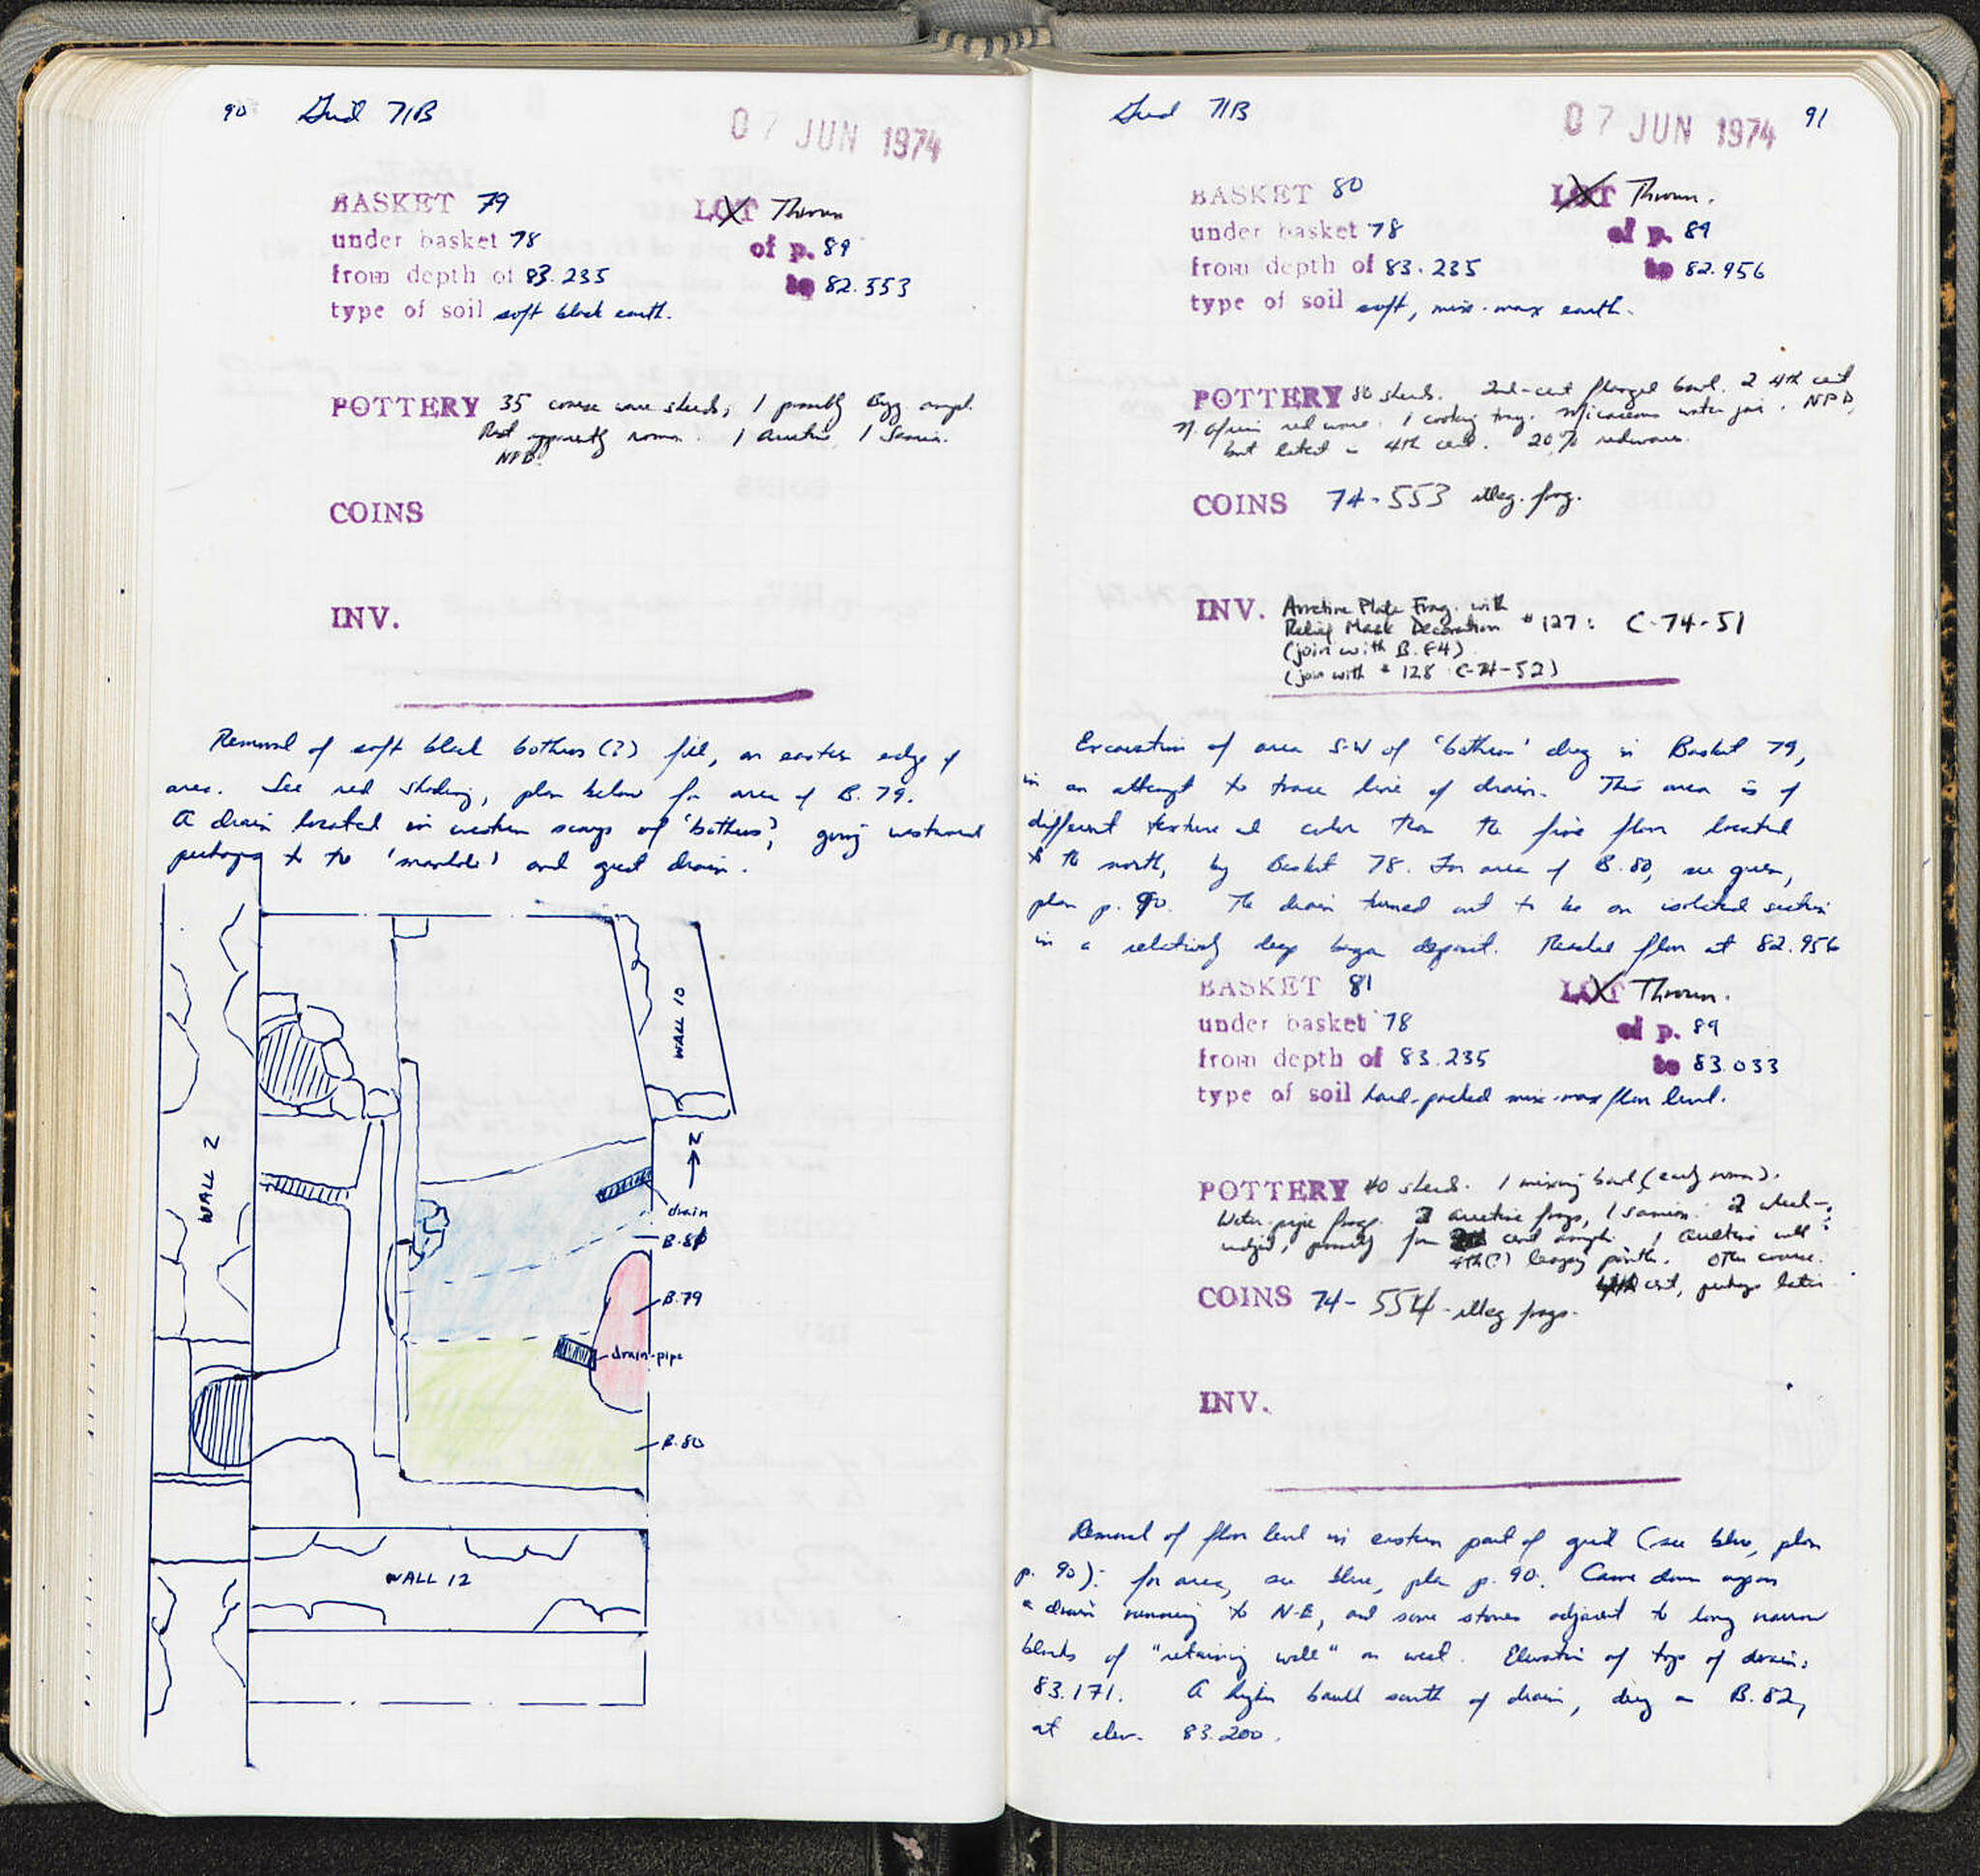 90 Grid 71B 07 JUN 1974
BASKET 79 LOT Thrown
under basket 78 of p. 89
from depth of 83.235 to 82.553
type of soil soft black earth.
POTTERY 35 coarse ware sherds; 1 possibly Byz ampl.
Rest apparently roman. 1 Arretine, 1 Samian.
NPD.
COINS
INV.
Removal of soft black bothros (?) fill, on eastern edge of
area. See red shading, plan below for area of B. 79.
A drain located in western scarp of 'bothros', going westward
perhaps to the 'manhole' and great drain.
WALL 10
WALL 2
N
drain
B.81
B.79
drain-pipe
B.80
WALL 12
Grid 71B 07 JUN 1974 91
BASKET 80 LOT Thrown.
under basket 78 of p. 89
from depth of 83.235 to 82.956
type of soil soft, mix-max earth.
POTTERY 80 sherds. 2nd-cent flanged bowl. 2 4th cent
N. African red ware. 1 cooking tray. Micaceous water jar. NPD,
but latest is 4th cent. 20% redwares.
COINS 74-553 illeg. frag.
INV. Arretine Plate Frag. with
Relief Mask Decoration #127: C-74-51
(join with B. 84)
(join with #128 C-74-52)
Excavation of area S-W of 'bothros' dug in Basket 79,
in an attempt to trace line of drain. This area is of
different texture and color than the fine floor located
to the north, by Basket 78. For area of B.80, see green,
plan p. 90. The drain turned out to be an isolated section
in a relatively deep deposit. Reached floor at 82.956
BASKET 81 LOT Thrown.
under basket 78 of p. 89
from depth of 83.235 to 83.033
type of soil hard-packed mix-max floor level.
POTTERY 40 sherds. 1 mixing bowl (early roman).
Water-pipe frags. 2 arretine frags, 1 samian. 2 wheel-
ridged, possibly from cent amph. 1 Arretine with
4th(?) points. Other coarse.
cent, perhaps later
COINS 74-554 - illeg frags.
INV.
Removal of floor level in eastern part of grid (see blue, plan
p. 90): for area, see blue, plan p. 90. Came down upon
a drain running to N-E, and some stones adjacent to long narrow
blocks of "retaining wall" on west. Elevation of top of drain:
83.171. A higher south of drain, dug as B.82,
at elev. 83.200.